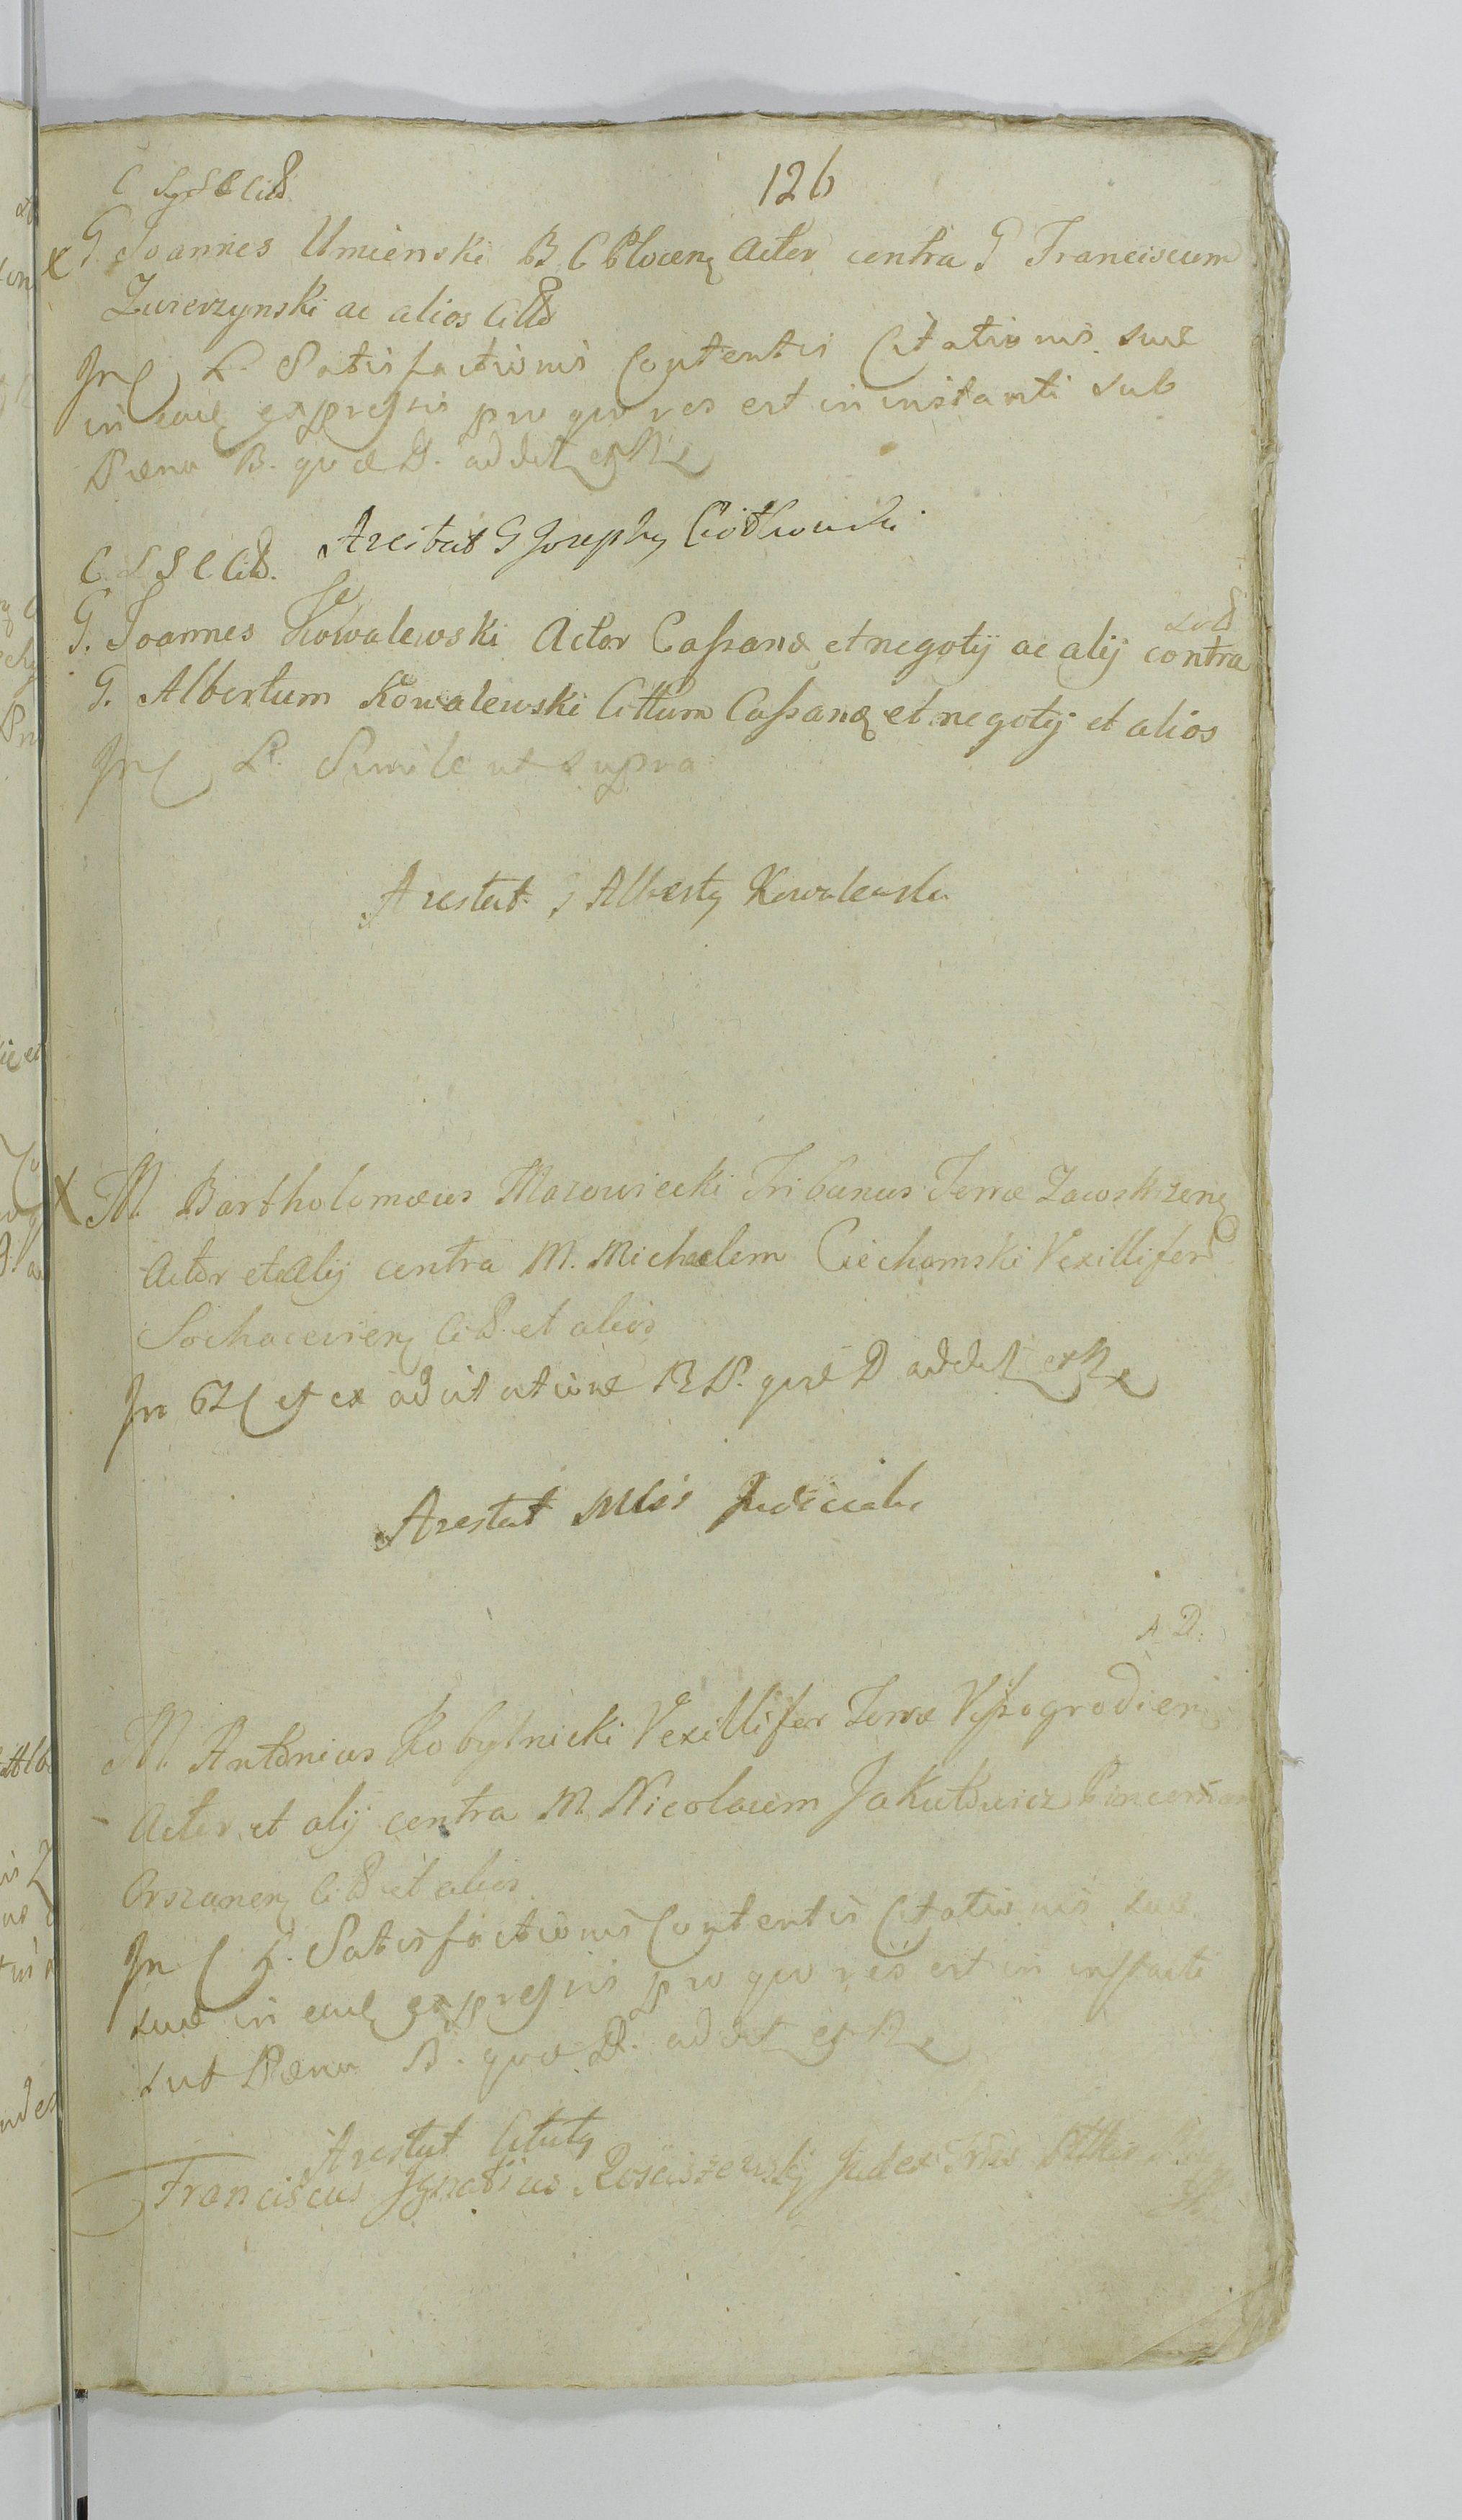 126
G. Joannes Umienski B. C Plocen Actor contra G Franciscum
Zwierzynski ac alios Citto
In C L. Satisfactionis Contentis Citationis suæ
in eaq expressis pro quo res est in instanti sub
Pæna B. quæ D. addet
Arestat G Josephq Ciołkowski
C. L S C Citto.
G. Joannes Kowalewski Actor Cassanæ et negotij ac alij contra
G. Albertum Kowalewski Cittum Cassanæ et negotij et alios
In C L. Simile ut supra
Arestat G Albertq Kowalewski
X M. Bartholomæus Mazowiecki Tribunus Terræ Zawskrzen
Actor et alij contra M. Michaelem Ciechomski Vexillifer
Sochacevien et alios
In et ex adcitatione quæ D addet
Arestat Judicialr
A D.
M. Antonius Kobylnicki Vexillifer Terræ Vyssogrodien
Actor et alij contra M. Nicolaum Jakutowicz Pincernam
Orszanen et alios
In C L. Satisfactionis Contentis Citationis suæ
suæ in eaq expressis pro quo res est in instanti
sub Pæna B. quæ D. addet
Arestat Citatq
Franciscus Ignatius Rosciszewskj Judex